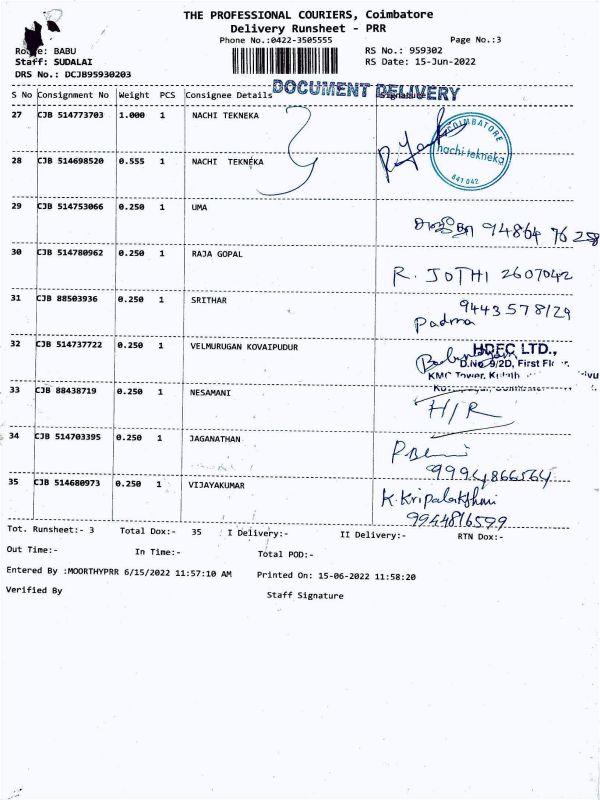 THE PROFESSIONAL COURIERS, Coimbatore
Delivery Runsheet - PRR
Phone No.:0422-3505555
Page No.:3
BABU
RS No.: 959302
Staff: SUDALAI
RS Date: 15-Jun-2022
DRS No.: DCJB95930203
DOCUMENT DELIVERY
S No Consignment No Weight PCS Consignee Details Signature
27 CJB 514773703 1.000 1 NACHI TEKNEKA
COIMBATORE
nachi-tekneka
641 042
28 CJB 514698520 0.555 1 NACHI TEKNEKA
29 CJB 514753066 0.250 1 UMA
94864 76 258
30 CJB 514780962 0.250 1 RAJA GOPAL
R. JOTHI 2607042
31 CJB 88503936 0.250 1 SRITHAR
9443578129
Padma
32 CJB 514737722 0.250 1 VELMURUGAN KOVAIPUDUR
HDFC LTD.,
D.No 9/2D, First
KMC Tower,
33 CJB 88438719 0.250 1 NESAMANI
H/R
34 CJB 514703395 0.250 1 JAGANATHAN
9994866564
35 CJB 514680973 0.250 1 VIJAYAKUMAR
K. Kripalakshmi
9944816599
Tot. Runsheet:- 3 Total Dox:- 35 I Delivery:- II Delivery:- RTN Dox:-
Out Time:- In Time:- Total POD:-
Entered By :MOORTHYPRR 6/15/2022 11:57:10 AM Printed On: 15-06-2022 11:58:20
Verified By Staff Signature